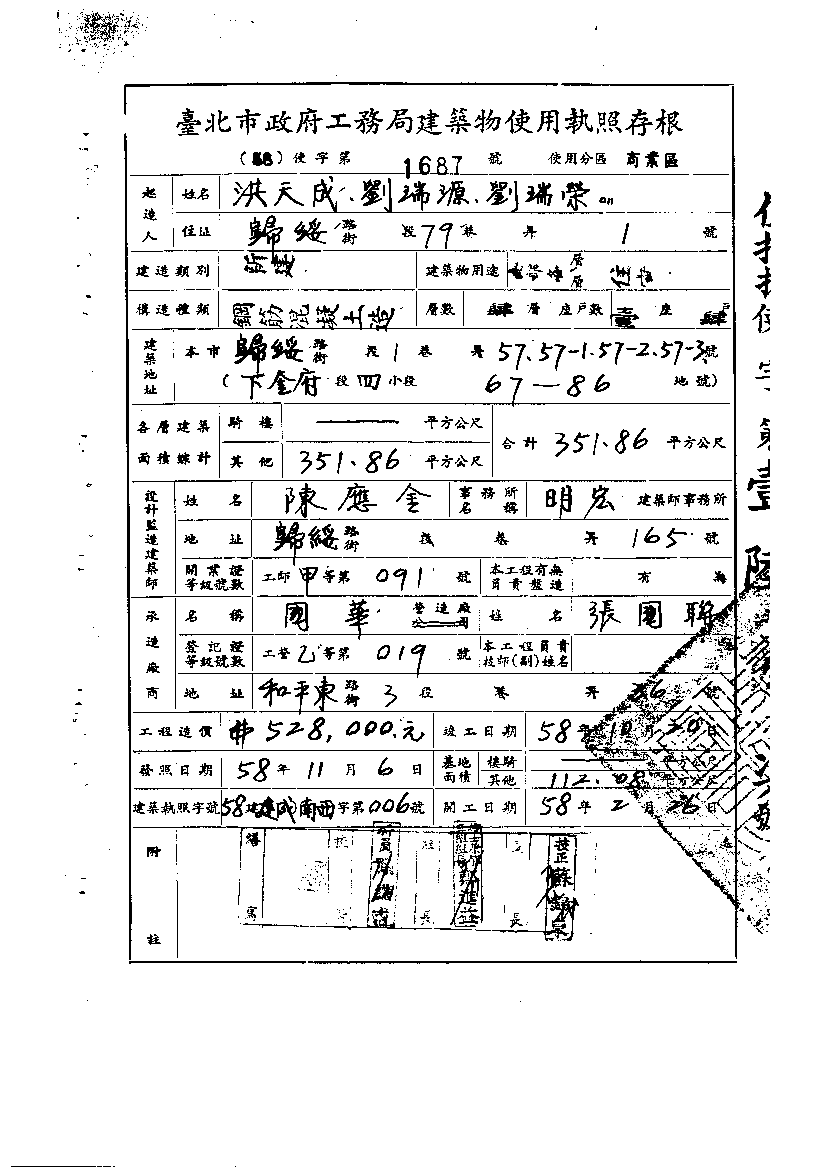 臺北市政府工務局建築物使用執照存根
(58) 使字第 1687 號 使用分區 商業區
起造人 姓名 洪天成、劉瑞源、劉瑞榮
住址 歸綏 路街 段 79 巷 弄 1 號
建造類別 新建 建築物用途 層 層 住宅
構造種類 鋼筋混凝土造 層數 肆 層 座戶數 座 肆 戶
建築地址 本市 歸綏 路街 段 1 巷 弄 57.57-1.57-2.57-3 號
(下奎府 段 四 小段 67-86 地號)
各層建築面積總計 騎樓 —— 平方公尺 合計 351.86 平方公尺
其他 351.86 平方公尺
設計監造建築師 姓名 陳應金 事務所名稱 明宏 建築師事務所
地址 歸綏 路街 段 巷 弄 165 號
開業證等級號數 工師 甲 等第 091 號 本工程有無員責監造 有 無
承造廠商 名稱 國華 營造廠公司 姓名 張國聯
登記證等級號數 工營 乙 等第 019 號 本工程員責技師(副)姓名
地址 和平東 路街 3 段 巷 弄 36 號
工程造價 528,000.元 竣工日期 58 年 10 月 20 日
發照日期 58 年 11 月 6 日 基地面積 騎樓 —— 平方公尺
其他 112.08 平方公尺
建築執照字號 58 建 成 南西 字第 006 號 開工日期 58 年 2 月 26 日
附註
繕寫 校對 股長 長 技正
使字第壹陸
號